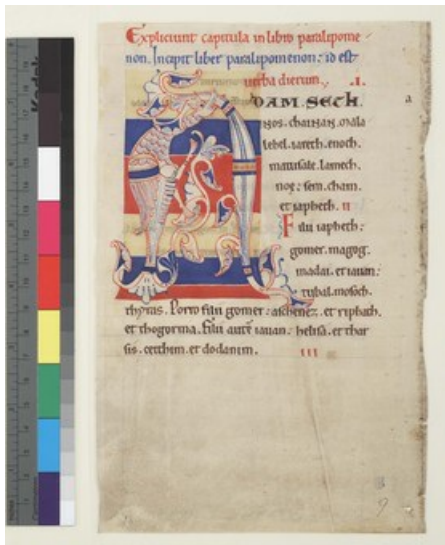 Expliciunt capitula in libro paralipome
non. Incipit liber paralipomenon: id est
verba dierum. .I.
DAM. SETH. a
nos. chaiNaN. mala
lehel. iareth. enoch.
matusale. lamech.
noe. sem. cham.
et iapheth. II
Filii iapheth:
gomer. magog.
madai. et iauan:
tubal. mosoch.
thyras. Porro filii gomer: aschenez. et riphath.
et thogorma. Filii autē iauan: helisa. et thar
sis. cetthim. et dodanim. III
Kodak
9